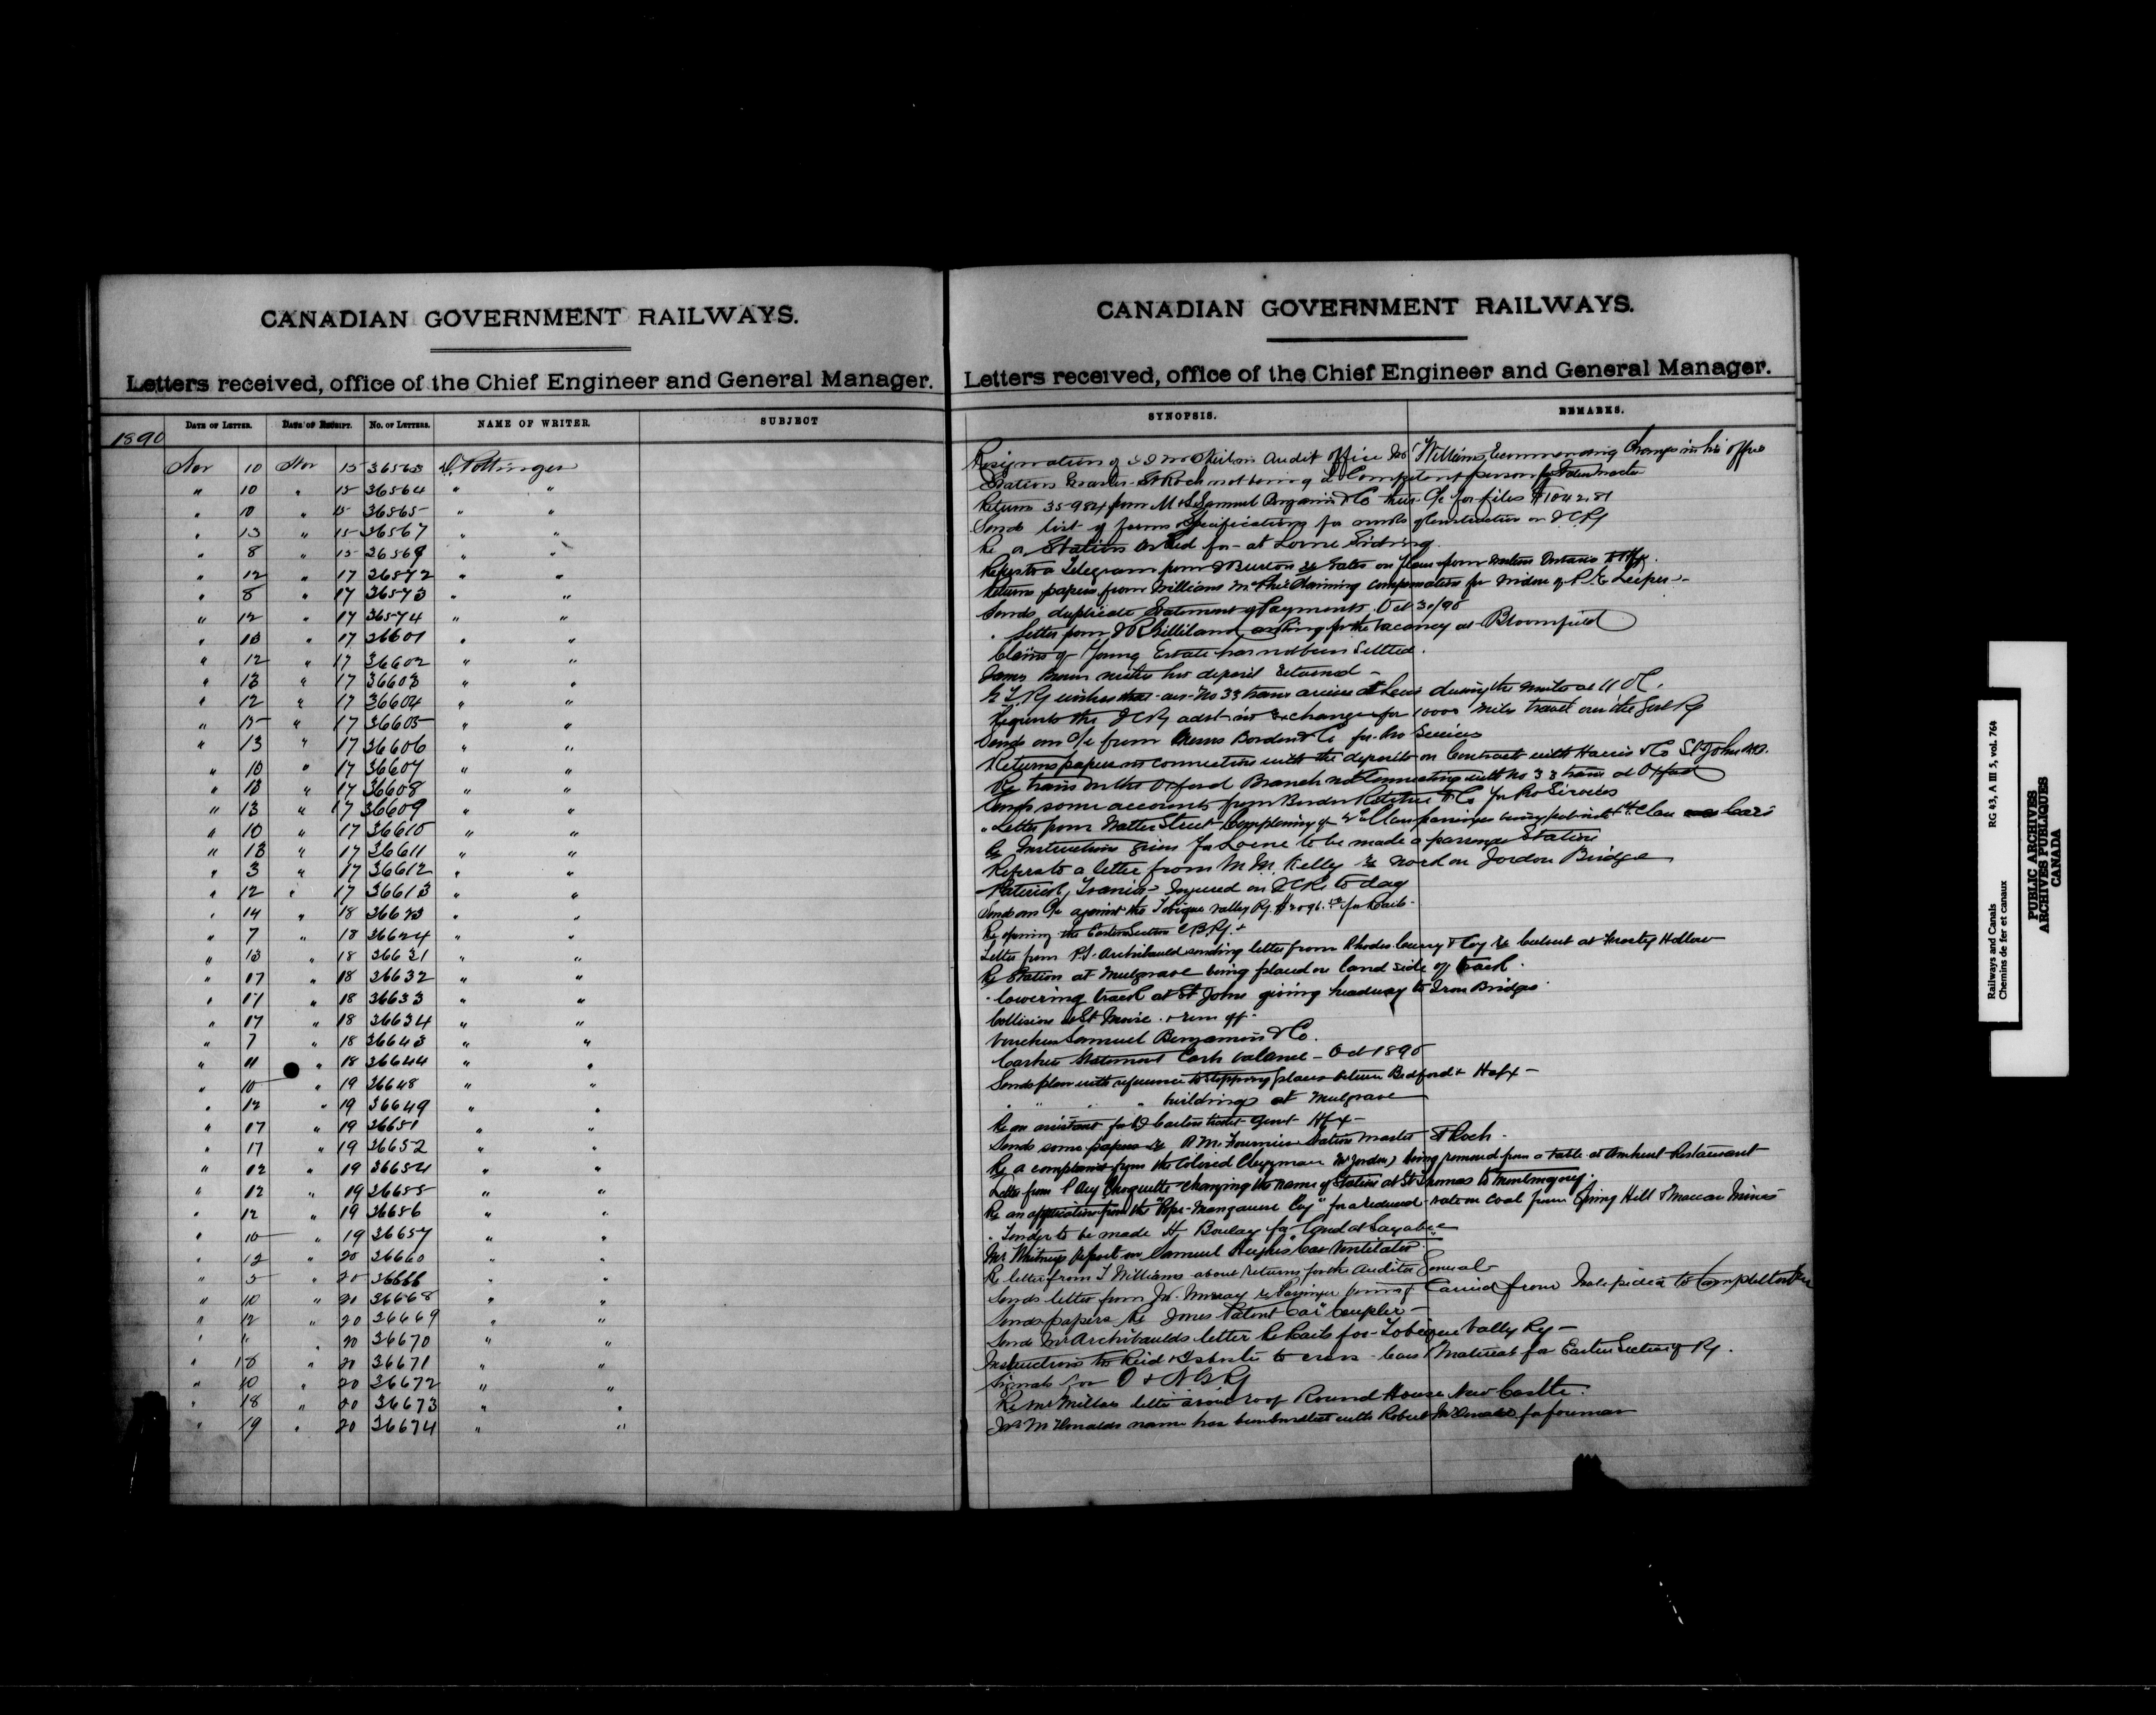 CANADIAN GOVERNMENT RAILWAYS.
Letters received, office of the Chief Engineer and General Manager.
DATE OF LETTER. DATE OF RECEIPT. No. OF LETTERS. NAME OF WRITER. SUBJECT
1890
Nov 10 Nov 15 36563 D. Pottinger
" 10 " 15 36564 " "
" 10 " 15 36565 " "
" 13 " 15 36567 " "
" 8 " 15 36569 " "
" 12 " 17 36572 " "
" 8 " 17 36573 " "
" 12 " 17 36574 " "
" 13 " 17 36601 " "
" 12 " 17 36602 " "
" 13 " 17 36603 " "
" 12 " 17 36604 " "
" 15 " 17 36605 " "
" 13 " 17 36606 " "
" 10 " 17 36607 " "
" 13 " 17 36608 " "
" 13 " 17 36609 " "
" 10 " 17 36610 " "
" 13 " 17 36611 " "
" 3 " 17 36612 " "
" 12 " 17 36613 " "
" 14 " 18 36623 " "
" 7 " 18 36624 " "
" 13 " 18 36631 " "
" 17 " 18 36632 " "
" 17 " 18 36633 " "
" 17 " 18 36634 " "
" 7 " 18 36643 " "
" 11 " 18 36644 " "
" 10 " 19 36648 " "
" 12 " 19 36649 " "
" 17 " 19 36651 " "
" 17 " 19 36652 " "
" 12 " 19 36654 " "
" 12 " 19 36655 " "
" 12 " 19 36656 " "
" 10 " 19 36657 " "
" 12 " 20 36660 " "
" 5 " 20 36666 " "
" 10 " 20 36668 " "
" 12 " 20 36669 " "
" " " 20 36670 " "
" 18 " 20 36671 " "
" 10 " 20 36672 " "
" 18 " 20 36673 " "
" 19 " 20 36674 " "
CANADIAN GOVERNMENT RAILWAYS.
Letters received, office of the Chief Engineer and General Manager.
SYNOPSIS. REMARKS.
Resignation of Audit office Mr Williams recommending changes in his office
Station Master St Roch not being a Competent person for Station Master
Returns 35984 from Samuel Benjamin & Co their a/c for files $1042.81
Sends list of forms & Specifications for works of Construction on ICRy
Re a Station asked for at Lorne Siding
Refers to a Telegram from re rates on flour from Western Ontario to Hfx.
Returns papers from Williams claiming compensation for widow of Leeper
Sends duplicate Statement of Payments Oct 30/90
" Letter from Gilliland asking for the vacancy at Bloomfield
Claim of Young Estate has not been Settled.
James Brown wishes his deposit returned
wishes No 33 train arrives at Levis during the winter at 11
Requests the ICRy in exchange for 1000 miles travel over the Ry
Sends an a/c from Messrs Borden & Co for Pro Services
Returns papers in connection with the deposits on Contracts with Harris & Co St John NB.
Re train on the Oxford Branch not Connecting with No 33 train at Oxford
Sends some accounts from Borden Ritchie & Co for Pro Services
" Letter from Walter Street Complaining of 2nd Class passengers being put into 1st Class Cars
Re Instructions given for Lorne to be made a passenger Station
Refers to a letter from M. M. Kelly re work on Jordon Bridge
Patrick Francis Injured on ICR to day
Sends an a/c against the Tobique Valley Ry. for Rails
Re opening the Eastern Section C.B.Ry.
Letter from P.S. Archibald sending letter from Rhodes Curry & Coy re Culvert at Frosty Hollow
Re Station at Mulgrave being placed on land side of track.
" lowering track at St Johns giving headway to Iron Bridges
Collision at St Moise & run off
Voucher Samuel Benjamin & Co.
Cashiers Statement Cash balance - Oct 1890
Sends plan with reference to stopping places between Bedford & Hafx -
" " " " buildings at Mulgrave
Re an assistant for ticket agent Hfx -
Sends some papers re A. M. Fournier Station Master St Roch.
Re a complaint from the Colored Clergyman Mr Jordon, being removed from a table at Amherst Restaurant
Letter from P Aug Choquette changing the name of Station at St Thomas to Montmagny.
Re an application from the "Pope-Manganese Coy" for a reduced rate on Coal from Spring Hill & Maccan Mines
" Tender to be made H. Boulay for land at Sayabec
Mr Whitneys Report on Samuel Hughes Car Ventilator.
Re letter from T Williams about returns for the Auditor General
Sends letter from Jn. Murray re Passenger being Carried from Metapedia to Campbellton
Sends papers Re Jones Patent Car Coupler -
Sends Mr Archibalds letter Re Rails for Tobique Valley Ry -
Instructions to Reid & Isbester to cross-ties Material for Eastern Section of Ry.
Signals for O & N B Ry
Re Mr Millers letter iron roof Round House New Castle.
Mr McDonalds name has been with Robert McDonald for foreman
Railways and Canals RG 43, A III 3, vol. 764
Chemins de fer et canaux
PUBLIC ARCHIVES
ARCHIVES PUBLIQUES
CANADA